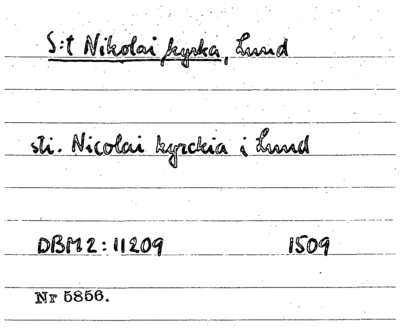 S:t Nikolai kyrka, Lund
sti. Nicolai kyrckia i Lund
DBM2:11209 1509
Nr 5856.